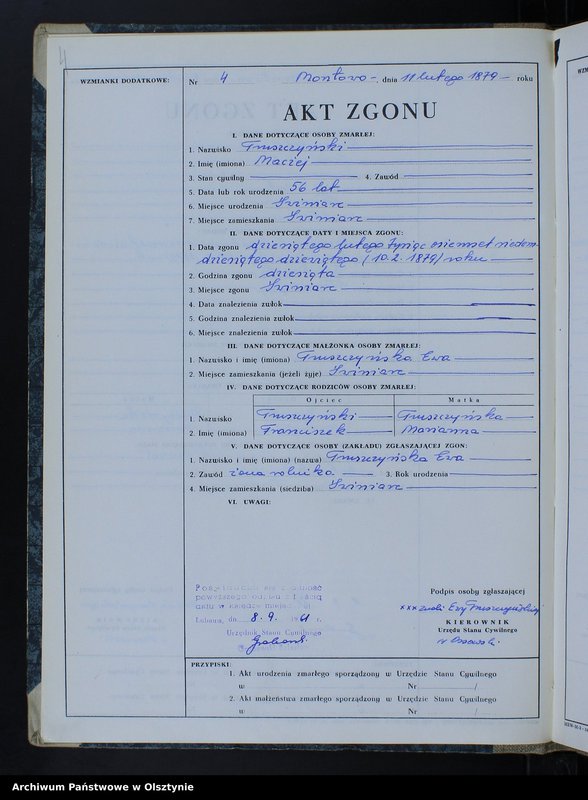 4
WZMIANKI DODATKOWE:
Nr 4 Montowo -, dnia 11 lutego 1879 - roku
AKT ZGONU
I. DANE DOTYCZĄCE OSOBY ZMARŁEJ:
1. Nazwisko Truszczyński
2. Imię (imiona) Maciej
3. Stan cywilny 4. Zawód
5. Data lub rok urodzenia 56 lat
6. Miejsce urodzenia Świniarc
7. Miejsce zamieszkania Świniarc
II. DANE DOTYCZĄCE DATY I MIEJSCA ZGONU:
1. Data zgonu dziesiątego lutego tysiąc osiemset siedem-
dziesiątego dziewiątego (10.2.1879) roku
2. Godzina zgonu dziewiąta
3. Miejsce zgonu Świniarc
4. Data znalezienia zwłok
5. Godzina znalezienia zwłok
6. Miejsce znalezienia zwłok
III. DANE DOTYCZĄCE MAŁŻONKA OSOBY ZMARŁEJ:
1. Nazwisko i imię (imiona) Truszczyńska Ewa
2. Miejsce zamieszkania (jeżeli żyje) Świniarc
IV. DANE DOTYCZĄCE RODZICÓW OSOBY ZMARŁEJ:
Ojciec Matka
1. Nazwisko Truszczyński Truszczyńska
2. Imię (imiona) Franciszek Marianna
V. DANE DOTYCZĄCE OSOBY (ZAKŁADU) ZGŁASZAJĄCEJ ZGON:
1. Nazwisko i imię (imiona) (nazwa) Truszczyńska Ewa
2. Zawód żona rolnika 3. Rok urodzenia
4. Miejsce zamieszkania (siedziba) Świniarc
VI. UWAGI:
Poświadcza się zgodność
powyższego odpisu z treścią
aktu w księdze
Lubawa, dn. 8.9. r.
Urzędnik Stanu Cywilnego
Podpis osoby zgłaszającej
xxx znaki Ewy Truszczyńskiej
KIEROWNIK
Urzędu Stanu Cywilnego
PRZYPISKI:
1. Akt urodzenia zmarłego sporządzony w Urzędzie Stanu Cywilnego
w Nr /
2. Akt małżeństwa zmarłego sporządzony w Urzędzie Stanu Cywilnego
w Nr /
Archiwum Państwowe w Olsztynie